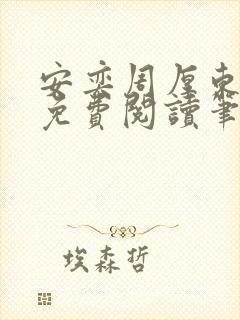 安奕周厚東
免費閱讀筆
埃森哲